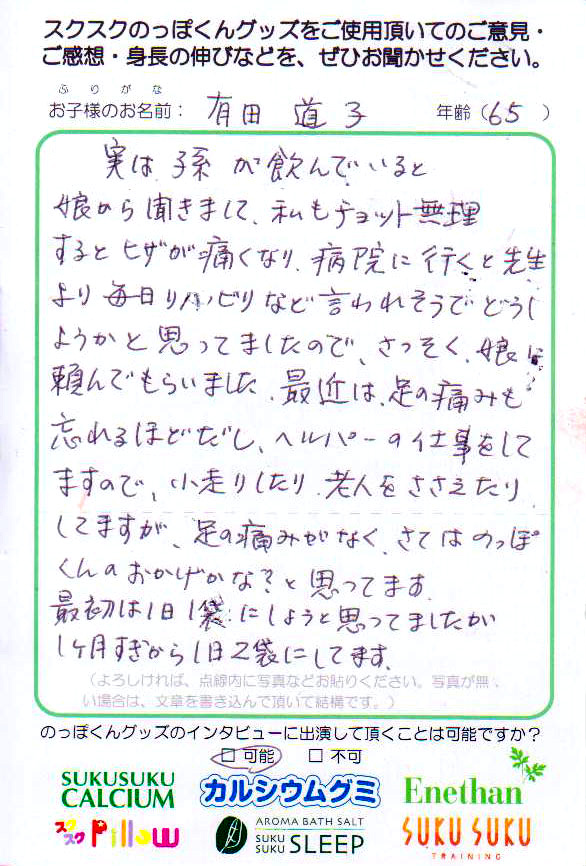 スクスクのっぽくんグッズをご使用頂いてのご意見・
ご感想・身長の伸びなどを、ぜひお聞かせください。
ふりがな
お子様のお名前: 有田 道子 年齢(65)
実は 孫が飲んでいると
娘から聞きまして、私もチョット無理
するとヒザが痛くなり、病院に行くと先生
より毎日リハビリなど言われそうでどうし
ようかと思ってましたので、さっそく、娘に
頼んでもらいました。最近は、足の痛みも
忘れるほどだし、ヘルパーの仕事をして
ますので、小走りしたり、老人をささえたり
してますが、足の痛みがなく、さてはのっぽ
くんのおかげかな?と思ってます。
最初は1日1袋にしようと思ってましたが
1ヶ月すぎから1日2袋にしてます。
(よろしければ、点線内に写真などお貼りください。写真が無
い場合は、文章を書き込んで頂いて結構です。)
のっぽくんグッズのインタビューに出演して頂くことは可能ですか?
□ 可能 □ 不可
SUKUSUKU
CALCIUM
カルシウムグミ
Enethan
スクスク Pillow
AROMA BATH SALT
SUKU
SUKU SLEEP
SUKU SUKU
TRAINING